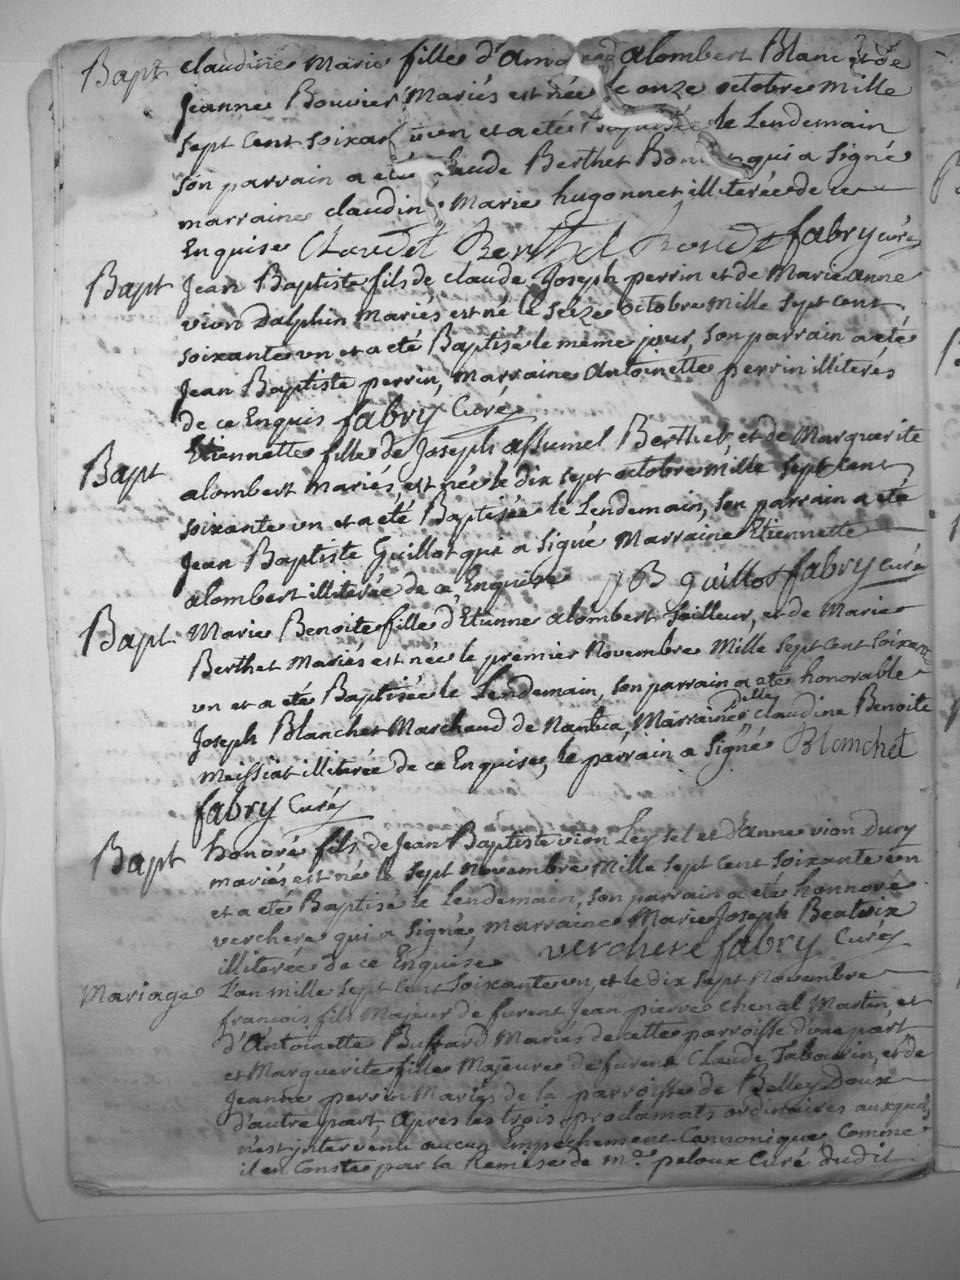 Bapt claudine Marie fille d'Amand alombert Blanc et de
Jeanne Bouvier Mariés est née le onze octobre mille
sept cent soixante un et a eté Baptisée le Lendemain
son parrain a eté Claude Berthet Bond qui a signé
marraine claudine Marie hugonnet illiterée de ce
Enquise Claude Berthet fabry curé
Bapt Jean Baptiste fils de claude Joseph perrin et de Marie anne
vion Dalphin mariés est né le seize octobre mille sept cent
soixante un et a eté Baptisé le même jour, son parrain a eté
Jean Baptiste perrin, marraine Antoinette perrin illiterés
de ce Enquis fabry Curé
Bapt Etiennette fille de Joseph assumel Berthet, et de Marguerite
alombert mariés est née le dix sept octobre mille sept cent
soixante un et a eté Baptisée le Lendemain, son parrain a eté
Jean Baptiste Guillot qui a signé Marraine Etiennette
alombert illiterée de ce Enquise JB guillot fabry curé
Bapt Marie Benoite fille d'Etienne alombert tailleur, et de Marie
Berthet Mariés est née le premier Novembre Mille sept cent soixante
un et a eté Baptisée le Lendemain, son parrain a eté honorable
Joseph Blanchet Marchand de Nantua, Marraine dlle claudine Benoite
meissiat illiterée de ce Enquise, le parrain a signé Blanchet
fabry Curé
Bapt honoré fils de Jean Baptiste vion Leytet et d'anne vion Dury
mariés est né le sept Novembre Mille sept cent soixante un
et a eté Baptisé le Lendemain, son parrain a eté honnoré
verchere qui a signé, marraine Marie Joseph Beatrix
illiterée de ce Enquise verchere fabry Curé
Mariage L'an mille sept cent soixante un, et le dix sept Novembre
francois fils Majeur de furent Jean pierre chenal Martin, et
d'Antoinette Buffard Mariés de cette parroisse d'une part
et Marguerite fille Majeure de furent Claude Tabourin, et de
Jeanne perrin Mariés de la parroisse de Belley Doux
d'autre part Apres les trois proclamats ordinaires auxquels
n'est intervenu aucun Empechement Cannonique Comme
il en Conste par la Remise de mre peloux Curé dudit